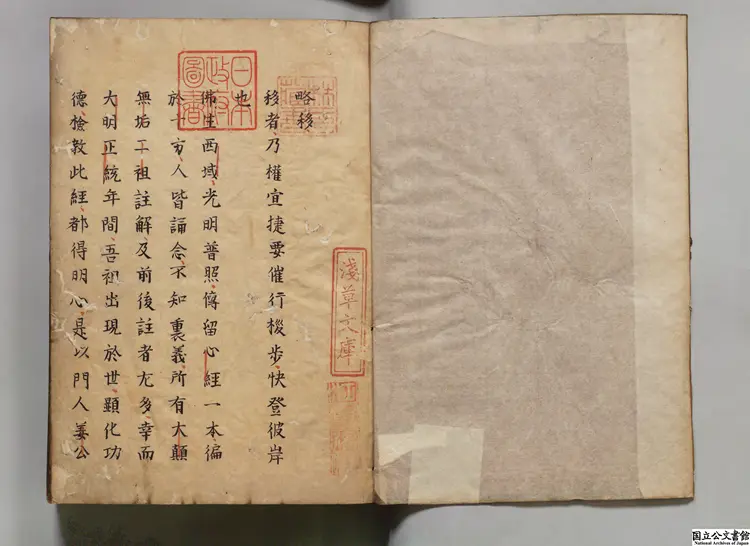 略移
移者乃權宜捷要催行步快登彼岸
也
佛生西域光明普照留心經一本徧
於十方人皆誦念不知裏義所有大顛
無垢二祖註解及前後註者尤多幸而
大明正統年間吾祖出現於世顯化功
德撿教此經都得明心是以門人姜公
日本政府圖書
淺草文庫
国立公文書館
National Archives of Japan